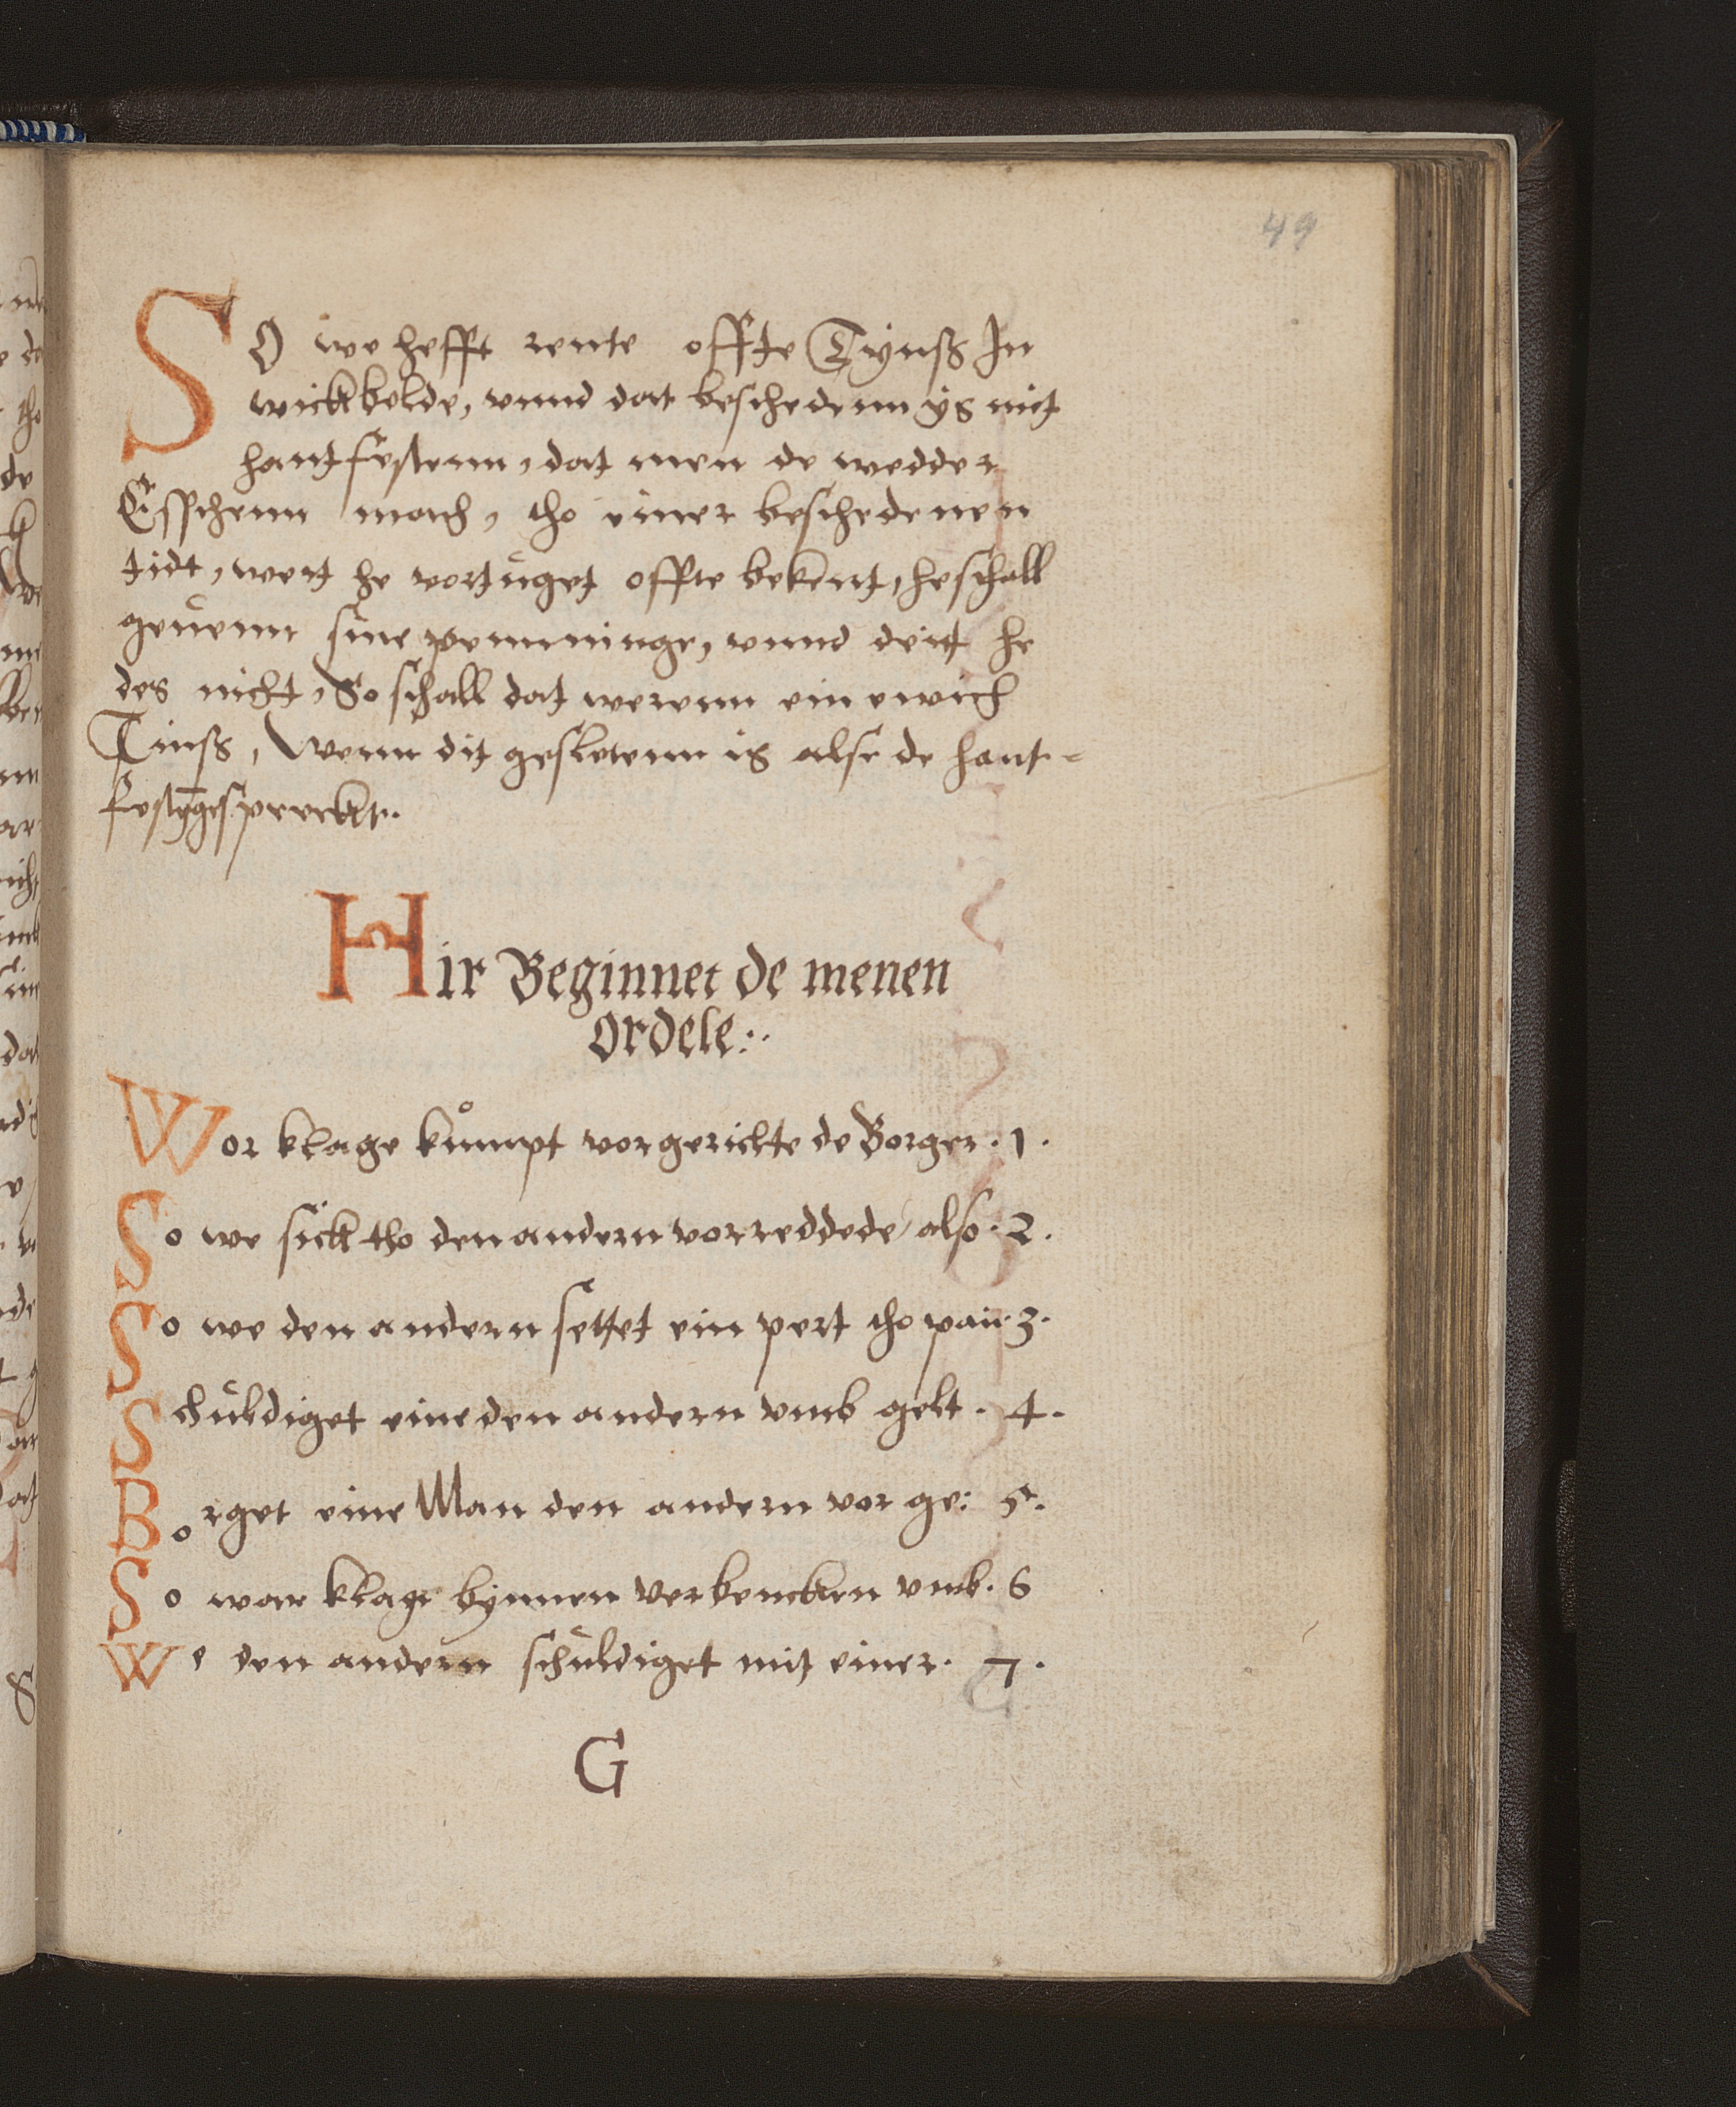 49
SO we hefft rente offte Tÿnß In
wickbelde, vnnd dat beschedenn ÿs mit
hantfestenn, dat men de wedder
Esschenn mach, tho einer beschedenen
tidt, wert he vortuget offte bekent, he schall
geuenn sine penninge, vnnd deit he
des nicht, So schall dat werenn ein ewich
Tinß, Wenn dit gesletenn is alse de hant-
spreckt.
Hir Beginnet de menen
ordele:.
Wor klage kumpt vor gerichte de Borger. 1.
So we sick tho den andern vorreddede also. 2.
So we den andern settet ein pert tho pan. 3.
Schuldiget eine den andern vmb gelt. 4.
Borget eine Man den andern vor ge: 5.
So war klage bynnen vmb. 6
We den andern schuldiget mit einer. 7.
G